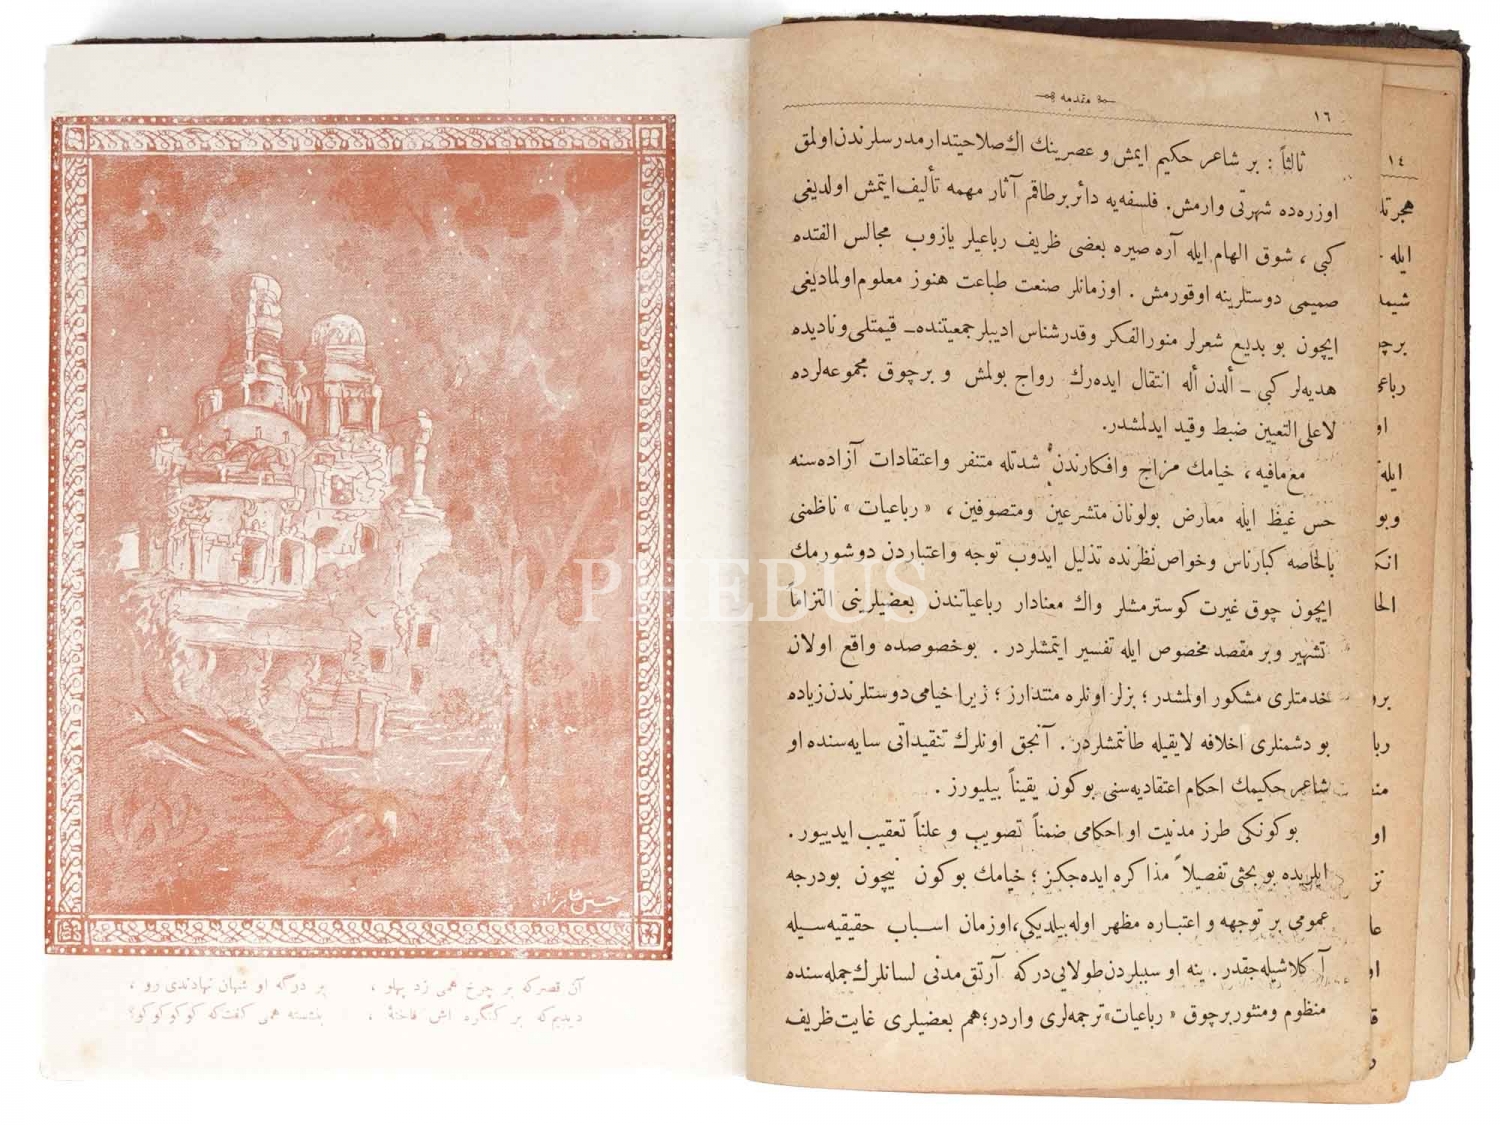 حسین طاهرزاده
آن قصر که بر چرخ همی زد پهلو ، بر درگه او شهان نهادندی رو ،
دیدیم که بر کنگره اش فاختهٔ ، بنشسته همی گفت که کوکوکوکو؟
PHEBUS
مقدمه
١٦
ثالثاً : بر شاعر حكيم ايمش و عصرينك اك صلاحيتدار مدرسلرندن اولمق
اوزره‌ده شهرتى وارمش. فلسفه‌يه دائر بر طاقم آثار مهمه تأليف ايتمش اولديغى
كبى ، شوق الهام ايله آره صيره بعضى ظريف رباعيلر يازوب مجالس الفتده
صميمى دوستلرينه اوقورمش . اوزمانلر صنعت طباعت هنوز معلوم اولماديغى
ايچون بو بديع شعرلر منورالفكر وقدرشناس اديبلر جمعيتنده ـ قيمتلى و ناديده
هديه‌لر كبى ـ ألدن أله انتقال ايده‌رك رواج بولمش و برچوق مجموعه‌لرده
لاعلى التعيين ضبط وقيد ايدلمشدر.
مع مافيه ، خيامك مزاج وافكارندن شدتله متنفر واعتقادات آزاده‌سنه
حس غيظ ايله معارض بولونان متشرعين ومتصوفين ، « رباعيات » ناظمنى
بالخاصه كبار ناس وخواص نظرنده تذليل ايدوب توجه واعتباردن دوشورمك
ايچون چوق غيرت كوسترمشلر واك معنادار رباعياتندن بعضيلرينى التزاماً
تشهير وبر مقصد مخصوص ايله تفسير ايتمشلردر . بوخصوصده واقع اولان
خدمتلرى مشكور اولمشدر ؛ بزلر اونلره منتدارز ؛ زيرا خيامى دوستلرندن زياده
بو دشمنلرى اخلافه لايقيله طانتمشلردر . آنجق اونلرك تنقيداتى سايه‌سنده او
شاعر حكيمك احكام اعتقاديه‌سنى بوكون يقيناً بيليورز .
بوكونكى طرز مدنيت او احكامى ضمناً تصويب و علناً تعقيب ايدييور .
ايلريده بو بحثى تفصيلاً مذاكره ايده‌جكز ؛ خيامك بوكون نيچون بودرجه
عمومى بر توجهه و اعتباره مظهر اوله‌بيلديكى، اوزمان اسباب حقيقيه‌سيله
آكلاشيله‌جقدر . ينه او سببلردن طولايى‌دركه آرتق مدنى لسانلرك جمله‌سنده
منظوم ومنثور برچوق « رباعيات » ترجمه‌لرى واردر ؛ هم بعضيلرى غايت ظريف
١٤